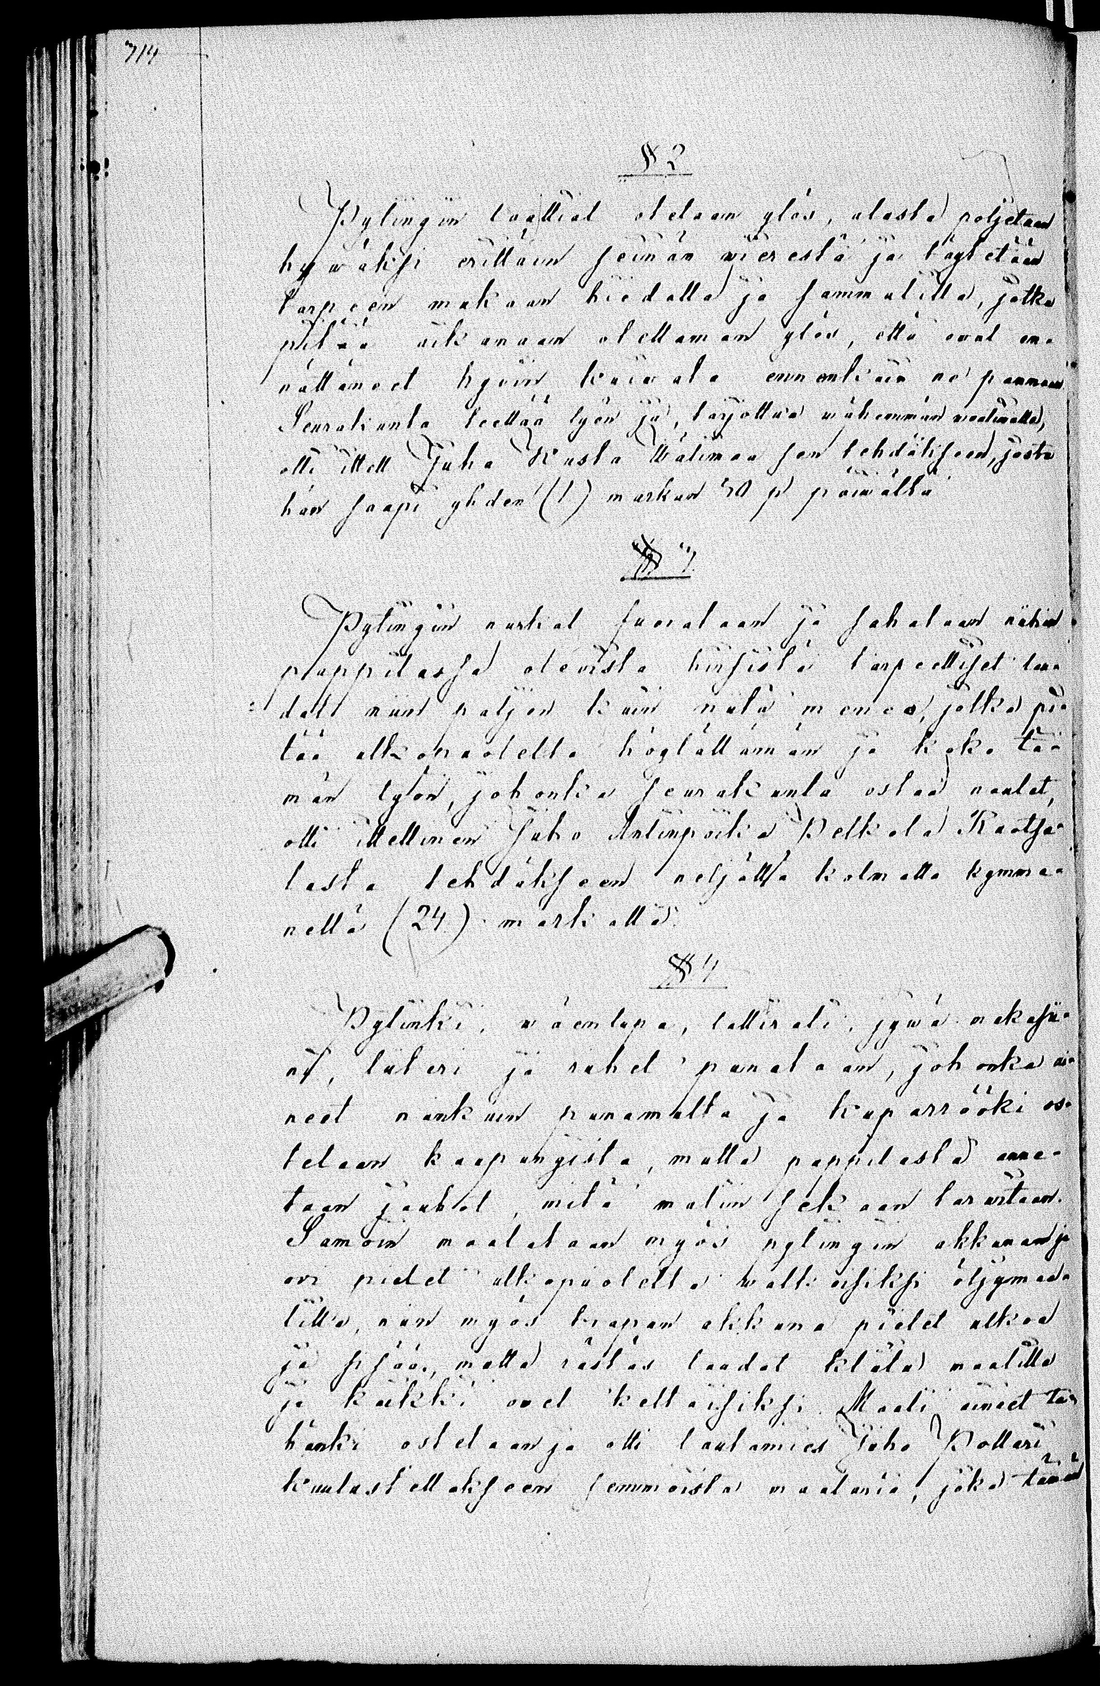 714
§ 2
Pytingin laattiat otetaan ylös, alasta poljetaan
hywäksi erittäin seinän wierestä ja täytetään
tarpeen mukaan hiedalla ja sammalilla, jotka
pitää aikanaan otettaman ylös, että owat en-
nättäneet hywin kuiwata ennenkuin ne pannaan
Seurakunta teettää työn ja, tarjottua wähemmän waatiwalle,
otti ittell Juha Kusta Wälimaa sen tehdäkseen, josta
hän saapi yhden (1) markan 50 p päiwältä
§ 3
Pytingin nurkat suorataan ja sahataan niihin
pappilassa olewista hirsistä tarpeelliset laa-
dat niin paljon kuin niitä menee, jotka pi-
tää ulkopuolelta höylättämän ja koko tä-
män työn, johonka seurakunta ostaa naulat,
otti ittellinen Juho Antinpoika Pelkola Kaatja-
lasta tehdäkseen neljällä kolmatta kymme-
nellä (24) markalla.
§ 4
Pytinki, wäentupa, tallirati, jywä makasii-
ni, liiteri ja rahet punataan, johonka ai-
neet niinkuin punamulta ja kuparrööki os-
tetaan kaapungista, mutta pappilasta anne-
taan jauhot, mitä maliin sekaan tarwitaan.
Samoin maalataan myös pytingin akkunan ja
owi pielet ulkopuolelta walkoisiksi öljymaa-
lilla, niin myös trapan akkuna pielet ulkoa
ja sisää, mutta rästäs laadat kiiltä maalilla
ja kaikki owet keltaisiksi. Maali aineet tä-
hänki ostetaan ja otti lautamies Juho Pollari
kuulustellakseen semmoista maalaria, joka tämän